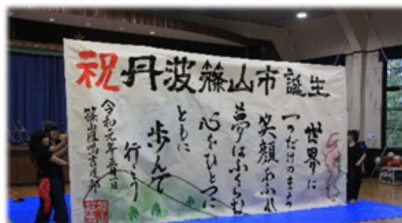 祝丹波篠山市誕生
世界に
一つだけのまち
笑顔あふれ
夢はふくらむ
心をひとつに
ともに
歩んで
行こう
令和元年五月一日
篠山鳳鳴書道部